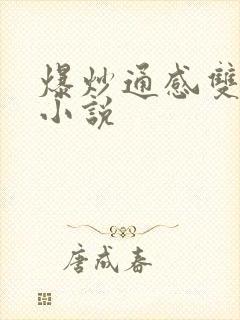 爆炒通感雙
小說
唐成春